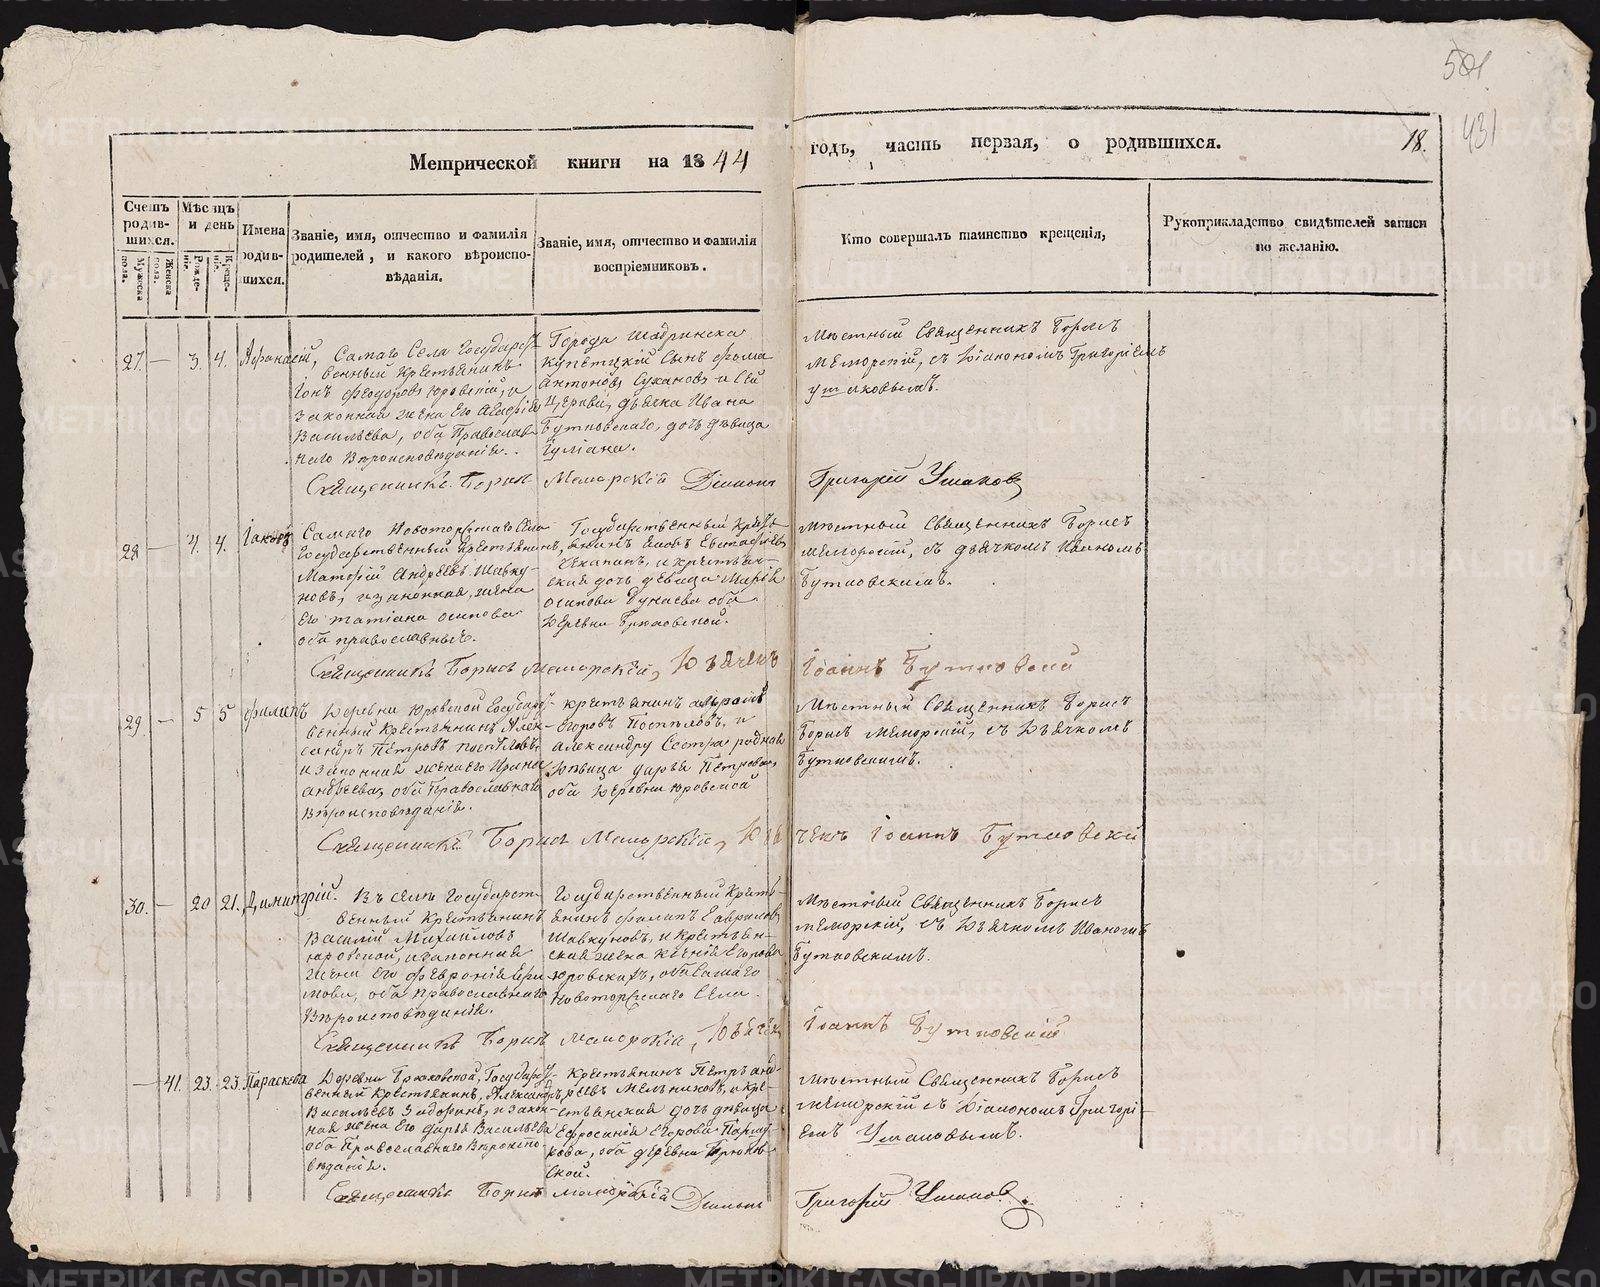 501
431
Метрической книги на 1844
годъ, часть первая, о родившихся. 18.
Счетъ родившихся.
Мужеска пола.
Женска пола.
Мѣсяцъ и день
Рожденiе.
Крещенiе.
Имена родившихся.
Званіе, имя, отчество и фамилія
родителей, и какого вѣроиспо-
вѣданія.
Званіе, имя, отчество и фамилія
воспріемниковъ.
Кто совершалъ таинство крещенія,
Рукоприкладство свидѣтелей записи
по желанію.
27. — 3. 4. Афанасій,
Самаго Села Государст-
венный крестьянинъ
Іонъ Феодоровъ Юровскій, и
законная жена Его Агафія
Васильева, оба Православ
наго Вѣроисповѣданія.
Города Шадринска
купецкій Сынъ Фома
Антоновъ Сухановъ и Сей
Церкви, дьячка Ивана
Бутковскаго, дочь дѣвица
Іуліана.
Мѣстный Священникъ Борисъ
Меморскій, съ Діакономъ Григоріемъ
Ушаковымъ.
Священникъ Борисъ Меморскій Діаконъ Григорій Ушаковъ
28 — 4. 4. Іаковъ
Самаго Новоторжскаго Села
Государственный крестьянинъ,
Матфій Андреевъ Шавку-
новъ, и законная жена
Его Татіана Осипова
оба православные.
Государственный кресть-
янинъ Іаковъ Евстафіевъ
и крестьян-
ская дочь девица Марія
Осипова Дунаева оба
Деревни Брюховской.
Мѣстный Священникъ Борисъ
Меморскій, съ дьячкомъ Иваномъ
Бутковскимъ.
Священникъ Борисъ Меморскій, Дьячекъ Іоаннъ Бутковскій
29. — 5 5 Филипъ
Деревни Юровской Государст-
венный Крестьянинъ Алек-
сандръ Петровъ Поспѣловъ,
и законная жена его Ирина
Андреева, оба Православнаго
Вѣроисповѣданія.
крестьянинъ Авраамъ
Егоровъ Поспѣловъ, и
Александру Сестра родная
Дѣвица Дарья Петрова,
оба Деревни Юровской
Мѣстный Священникъ Борисъ
Борисъ Меморскій, съ Дьячкомъ
Бутковскимъ.
Священникъ Борисъ Меморскій, Дьячекъ Іоаннъ Бутковскій
30. — 20 21. Димитрій.
Въ Селѣ Государст-
венный Крестьянинъ
Василій Михайловъ
Юровской, и законная
жена Его Февронія Ефи
мова, оба Православнаго
Вѣроисповѣданія.
Государственный Кресть-
янинъ Филипъ Гавриловъ
Шавкуновъ, и Крестьян-
ская жена Ксенія Егорова
Юровскихъ, оба Самаго
Новоторжскаго Села.
Мѣстный Священникъ Борисъ
Меморскій, съ Дьячкомъ Иваномъ
Бутковскимъ.
Священникъ Борисъ Меморскій, Дьячекъ Іоаннъ Бутковскій
— 41. 23. 23. Параскева
Деревни Брюховской, Государст-
венный крестьянинъ, Александръ
Васильевъ Задоринъ, и закон-
ная жена Его Дарья Васильева
оба Православнаго Вѣроиспо-
вѣданія.
Крестьянинъ Петръ Анд-
реевъ Мельниковъ, и кре-
стьянская дочь дѣвица
Ефросинія Егорова
оба деревни Брюхов-
ской.
Мѣстный Священникъ Борисъ
Меморскій съ Діакономъ Григорі-
емъ Ушаковымъ.
Священникъ Борисъ Меморскій Діаконъ Григорій Ушаковъ.
METRIKI.GASO-URAL.RU